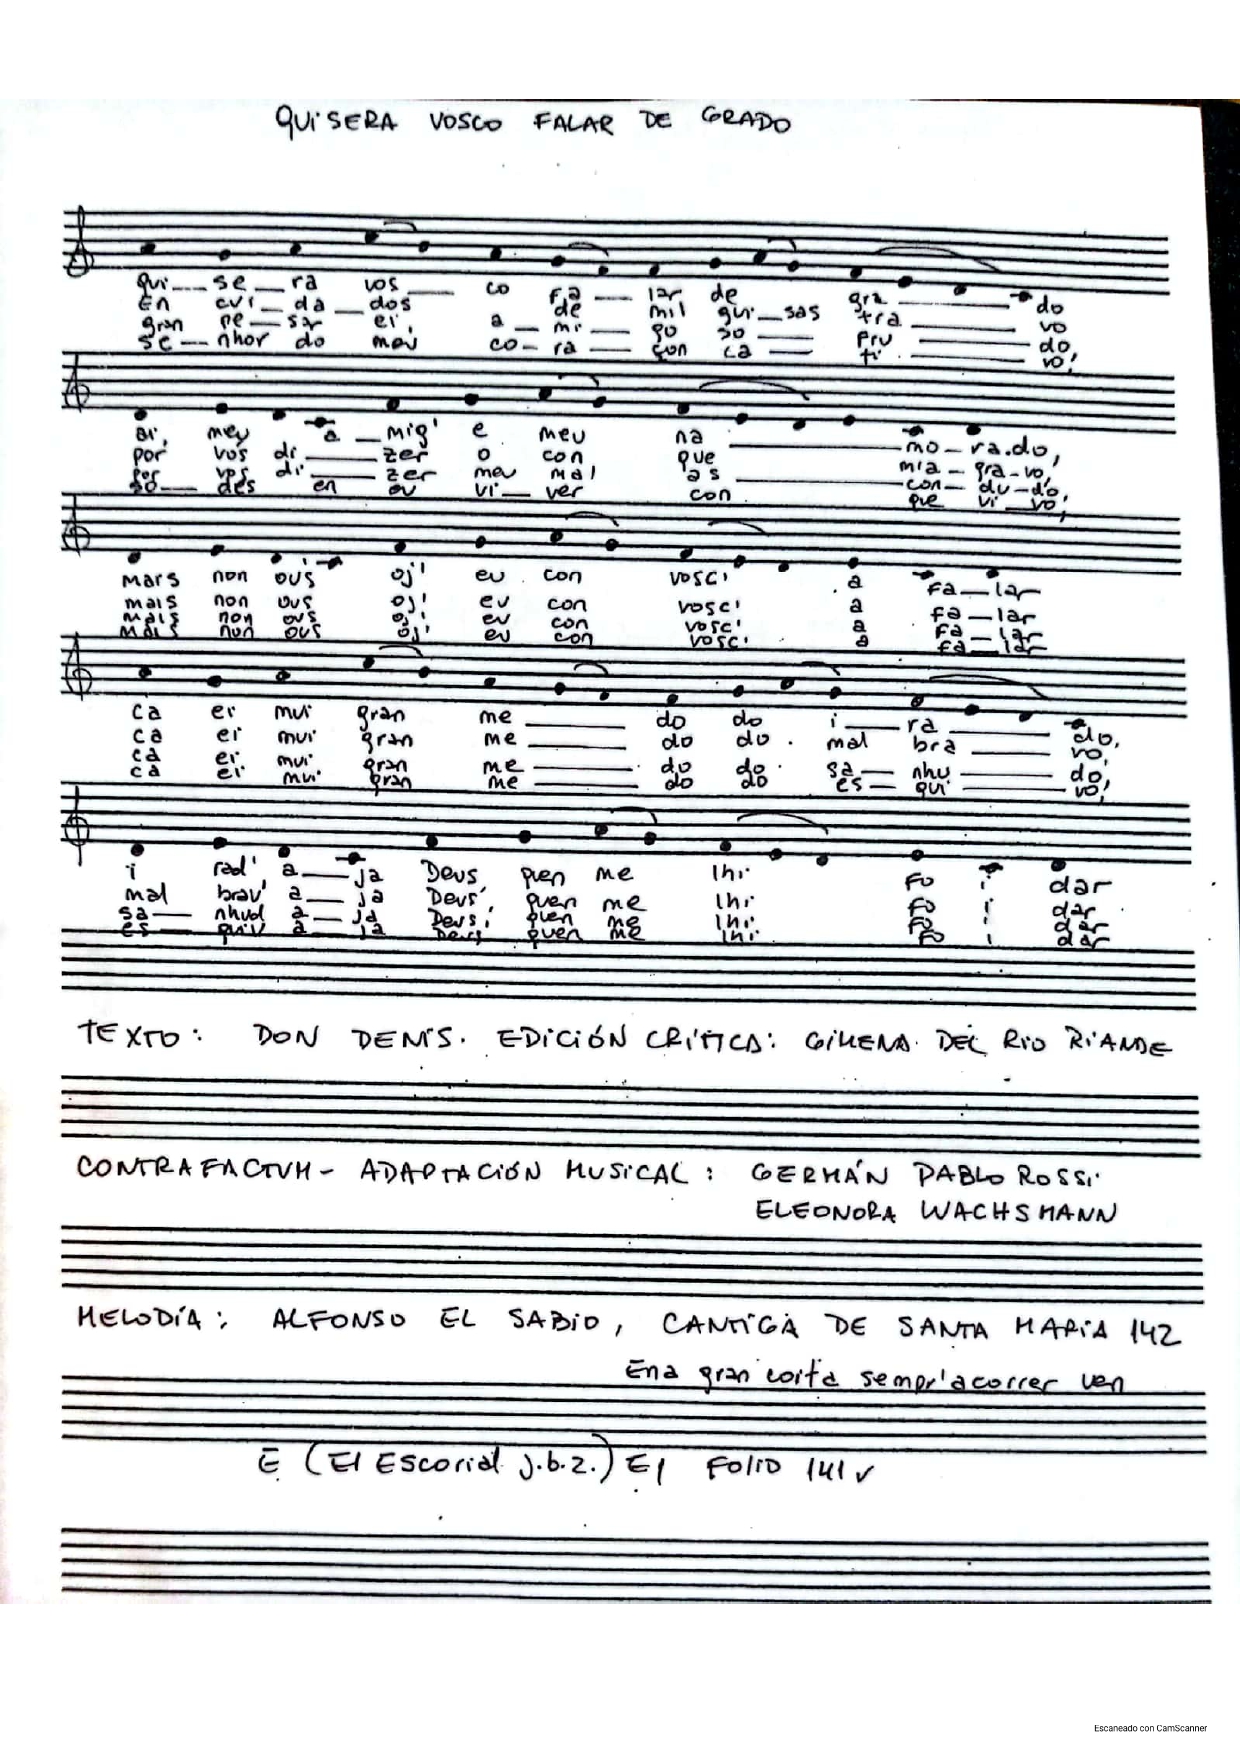 QUISERA VOSCO FALAR DE GRADO
qui__se__ra vos__co fa__lar de gra__do
En cui__da__dos de mil gui__sas tra__vo
gran pe__sar ei, a__mi__go so__fru__do
se__nhor do meu co__ra__çon ca__ti__vo,
ai, meu a__mig' e meu na__mo__ra.do,
por vos di__zer o con que mia__gra__vo,
por vos di__zer meu mal as__con__du__do,
so__des en eu vi__ver con que vi__vo,
mais non ous' oj' eu con vosc' a fa__lar
mais non ous oj' eu con vosc' a fa__lar
mais non ous oj' eu con vosc' a fa__lar
mais non ous oj' eu con vosc' a fa__lar
ca ei mui gran me__do do i__ra__do,
ca ei mui gran me__do do mal bra__vo,
ca ei mui gran me__do do sa__nhu__do,
ca ei mui gran me__do do es__qui__vo,
i rad' a__ja Deus quen me lhi fo i dar
mal brav' a__ja Deus, quen me lhi fo i dar
sa__nhud a__ja Deus, quen me lhi fo i dar
es__quiv a__ja Deus quen me lhi fo i dar
TEXTO: DON DENIS. EDICIÓN CRÍTICA: GIMENA DEL RIO RIANDE
CONTRAFACTUM - ADAPTACIÓN MUSICAL: GERMÁN PABLO ROSSI
ELEONORA WACHSMANN
MELODÍA: ALFONSO EL SABIO, CANTIGA DE SANTA MARIA 142
Ena gran coita sempr'acorrer ven
E (El Escorial j.b.2.) E1 FOLIO 141v
Escaneado con CamScanner